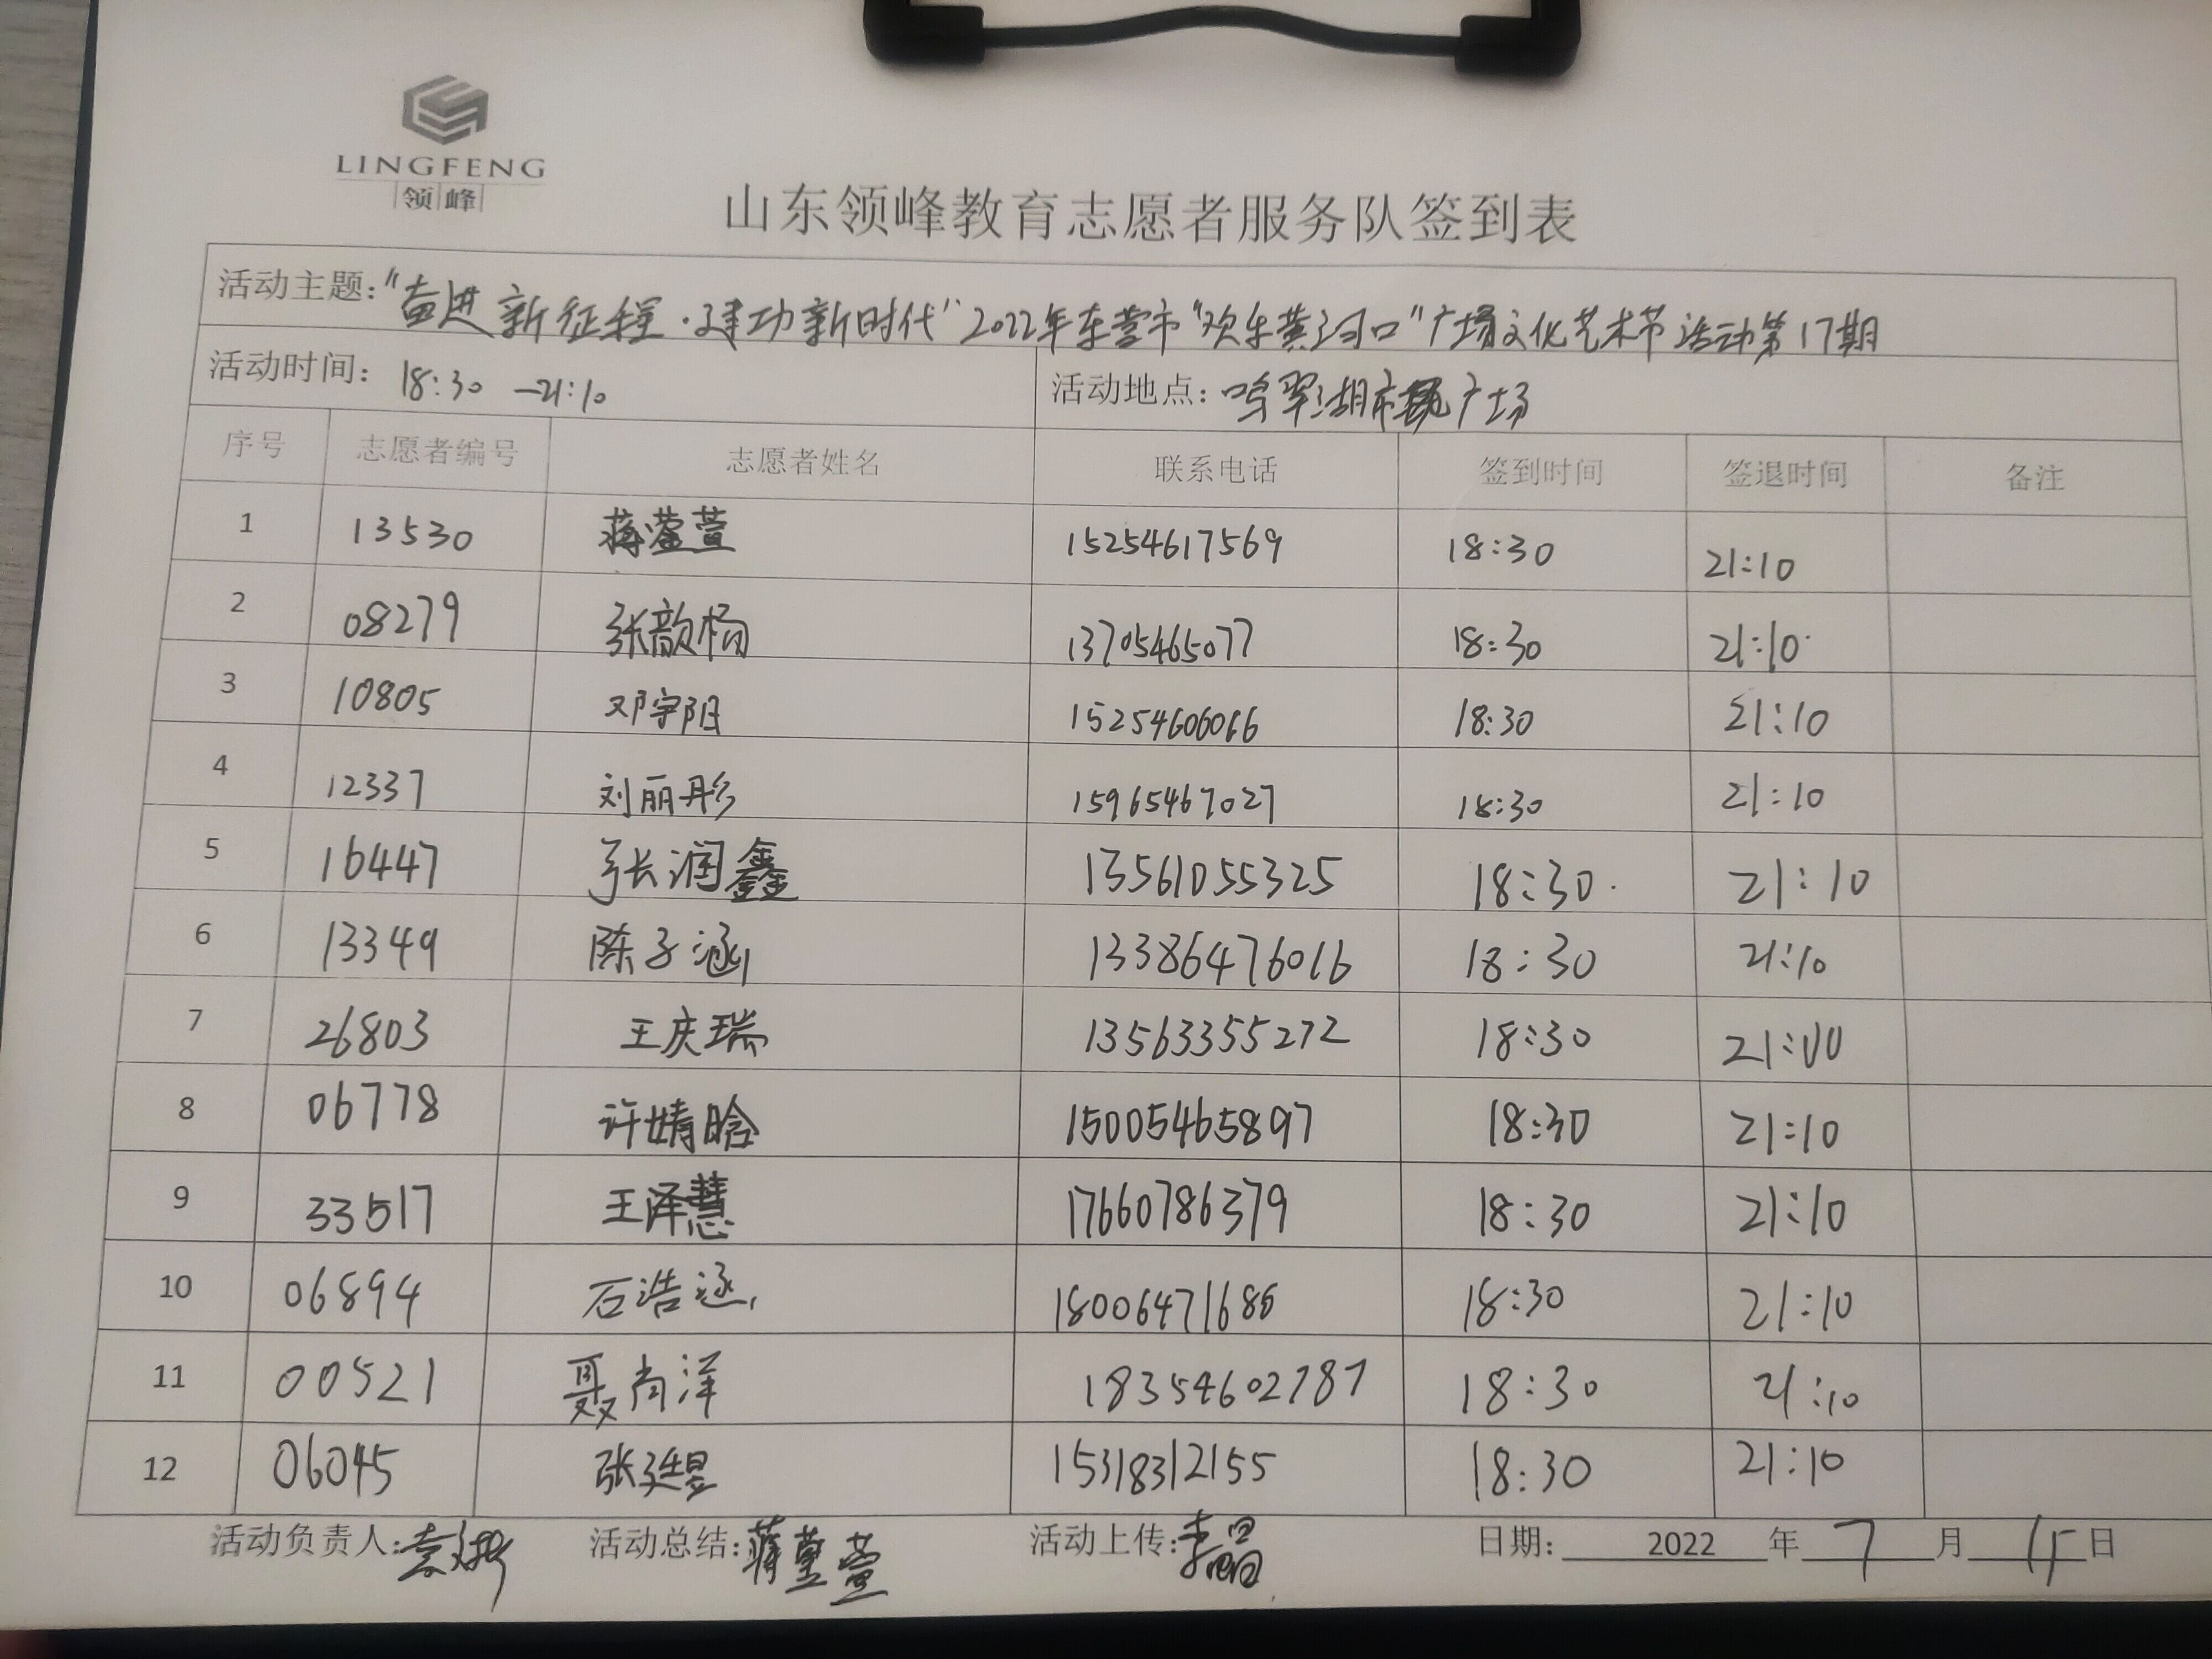 LINGFENG
领峰
山东领峰教育志愿者服务队签到表
活动主题:"奋进新征程·建功新时代"2022年东营市"欢乐黄河口"广场文化艺术节活动第17期
活动时间: 18:30 —21:10 活动地点: 鸣翠湖市民广场
序号 志愿者编号 志愿者姓名 联系电话 签到时间 签退时间 备注
1 13530 蒋萱 15254617569 18:30 21:10
2 08279 张歆杨 13705465077 18:30 21:10
3 10805 邓宇阳 15254606066 18:30 21:10
4 12337 刘丽彤 15965467027 18:30 21:10
5 16447 张润鑫 13561055325 18:30 21:10
6 13349 陈子涵 13386476016 18:30 21:10
7 26803 王庆瑞 13563355272 18:30 21:
8 06778 许婧晗 15005465897 18:30 21:10
9 33517 王泽慧 17660786379 18:30 21:10
10 06894 石浩涵 18006471686 18:30 21:10
11 00521 聂尚洋 18354602787 18:30 21:10
12 06045 张廷昱 15318312155 18:30 21:10
活动负责人: 活动总结: 蒋萱 活动上传: 李 日期: 2022 年 7 月 日